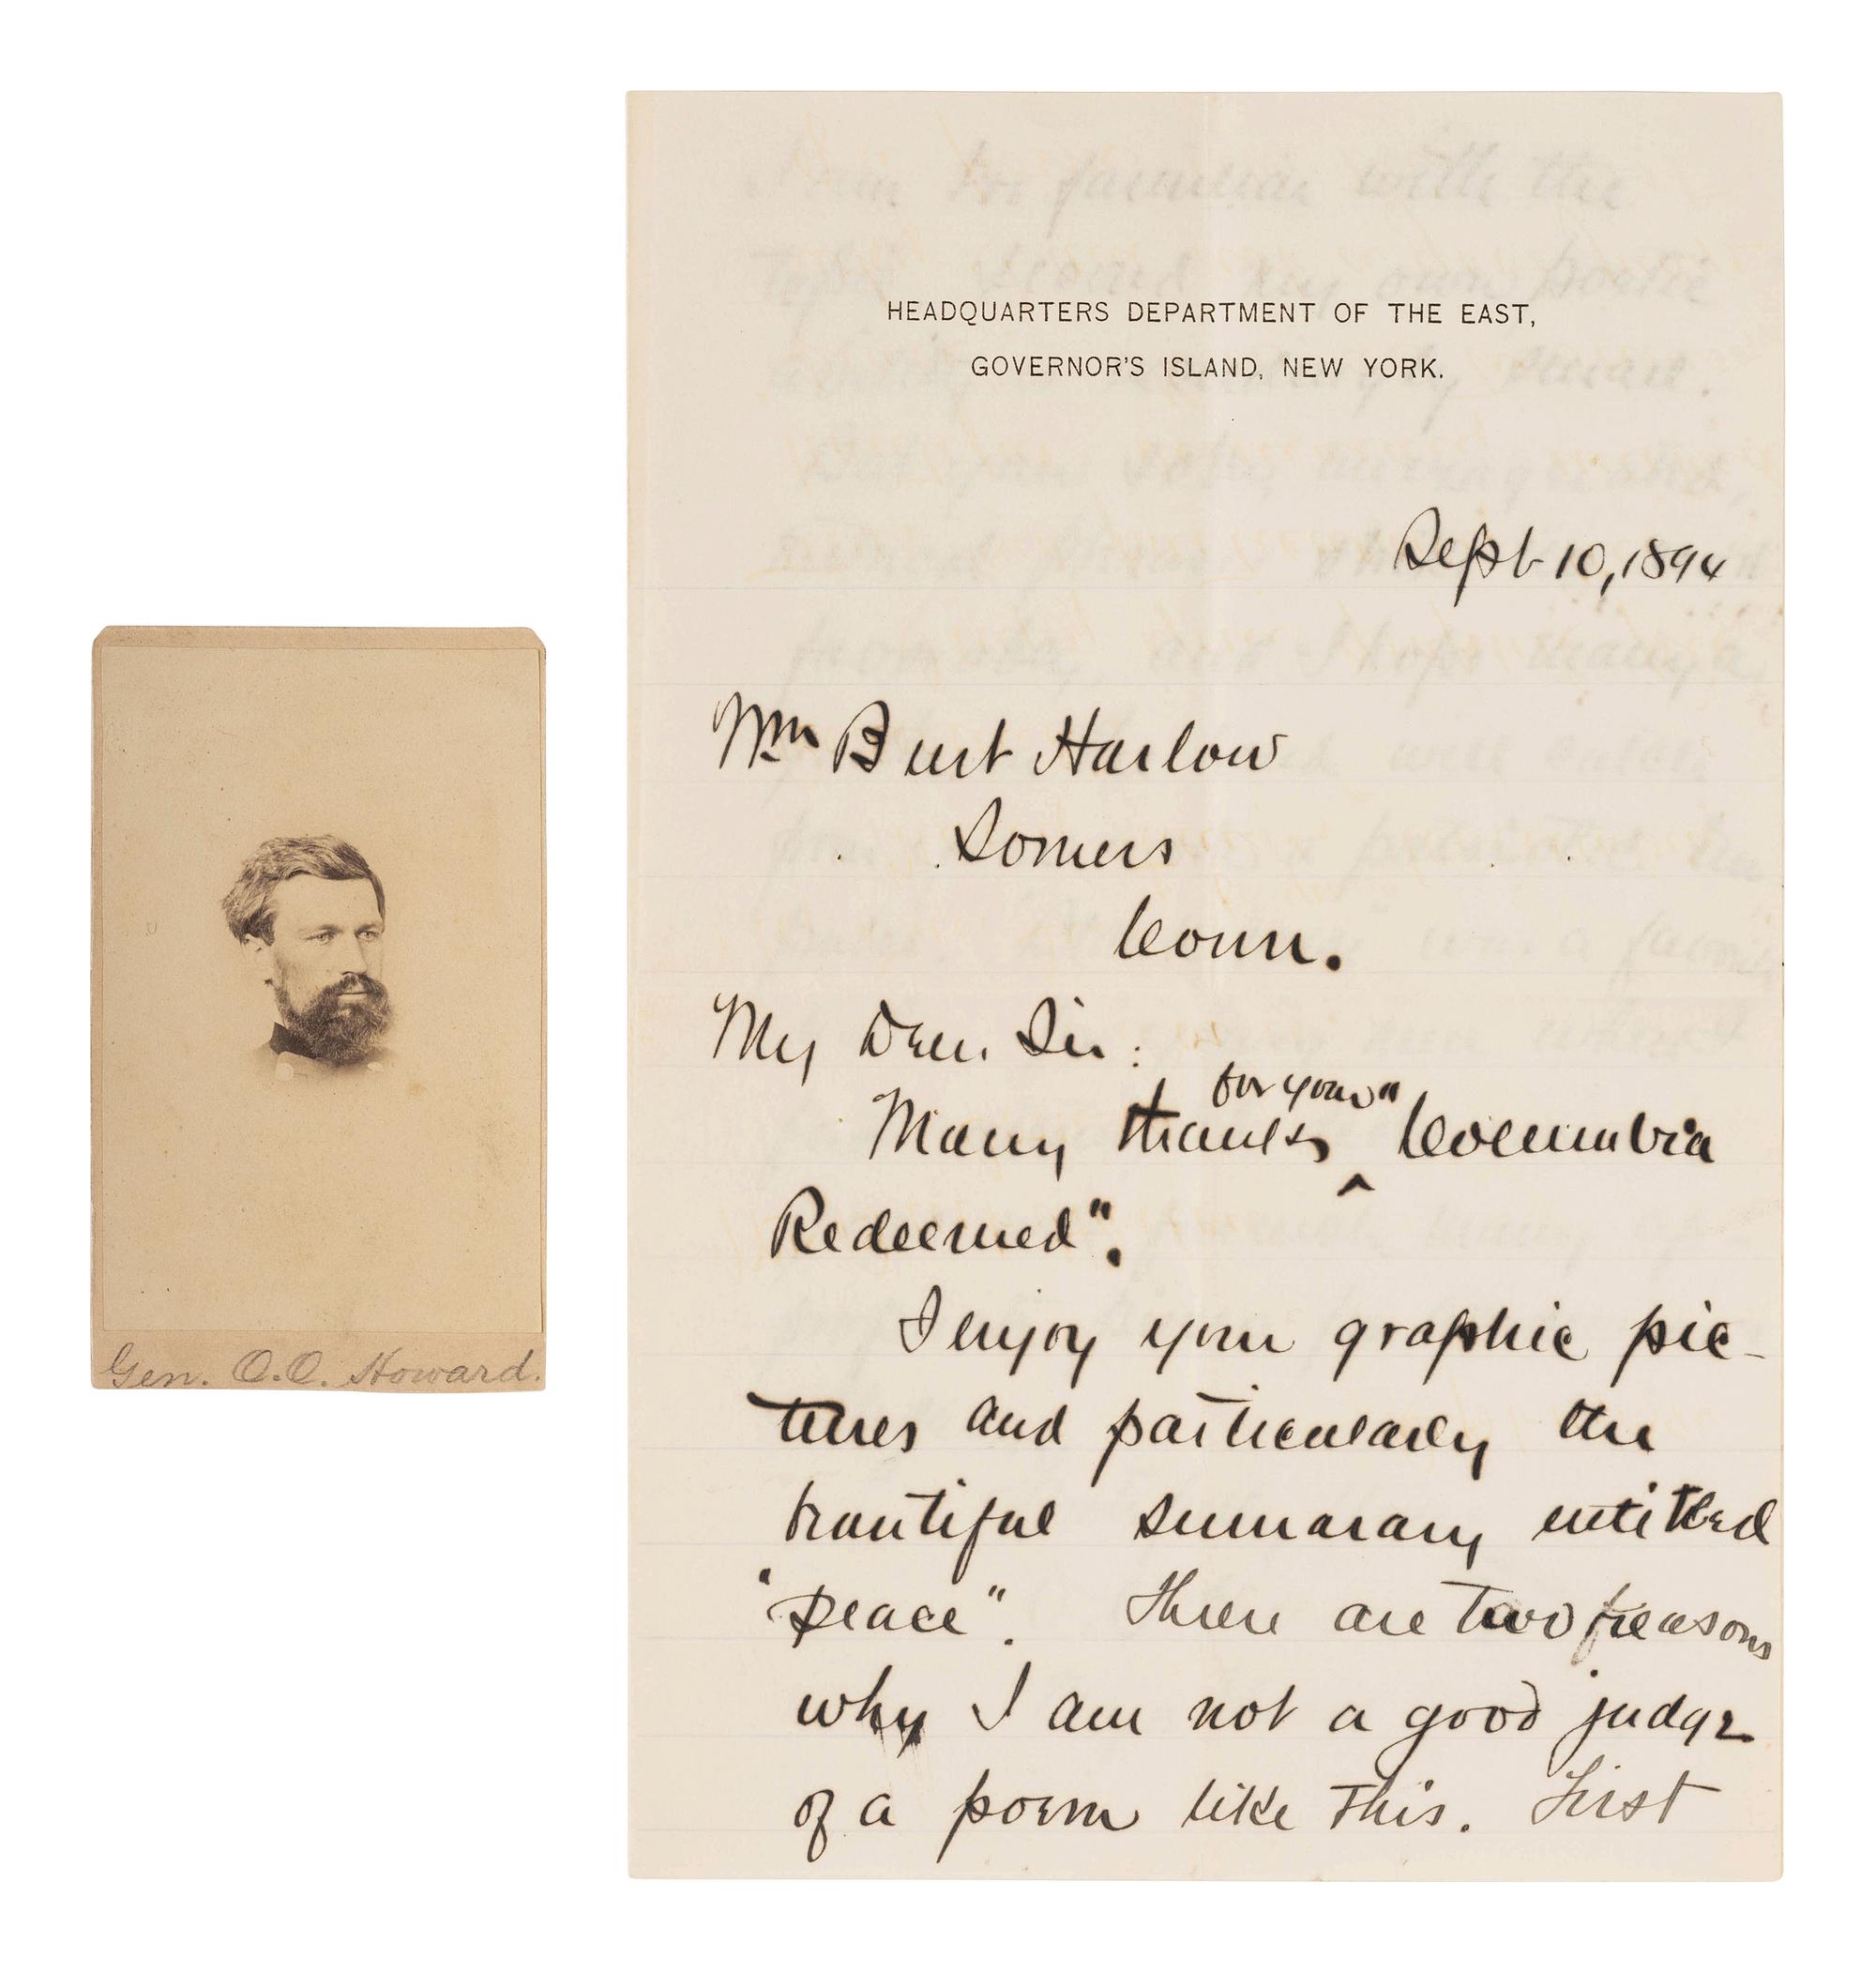 Gen. O.O. Howard.
HEADQUARTERS DEPARTMENT OF THE EAST,
GOVERNOR'S ISLAND, NEW YORK.
Sept 10, 1894
Wm Burt Harlow
Somers
Conn.
My Dear Sir:
for your "
Many thanks ^ Columbia
Redeemed".
I enjoy your graphic pic-
tures and particularly the
beautiful summary entitled
"Peace". There are two reasons
why I am not a good judge
of a poem like this. First